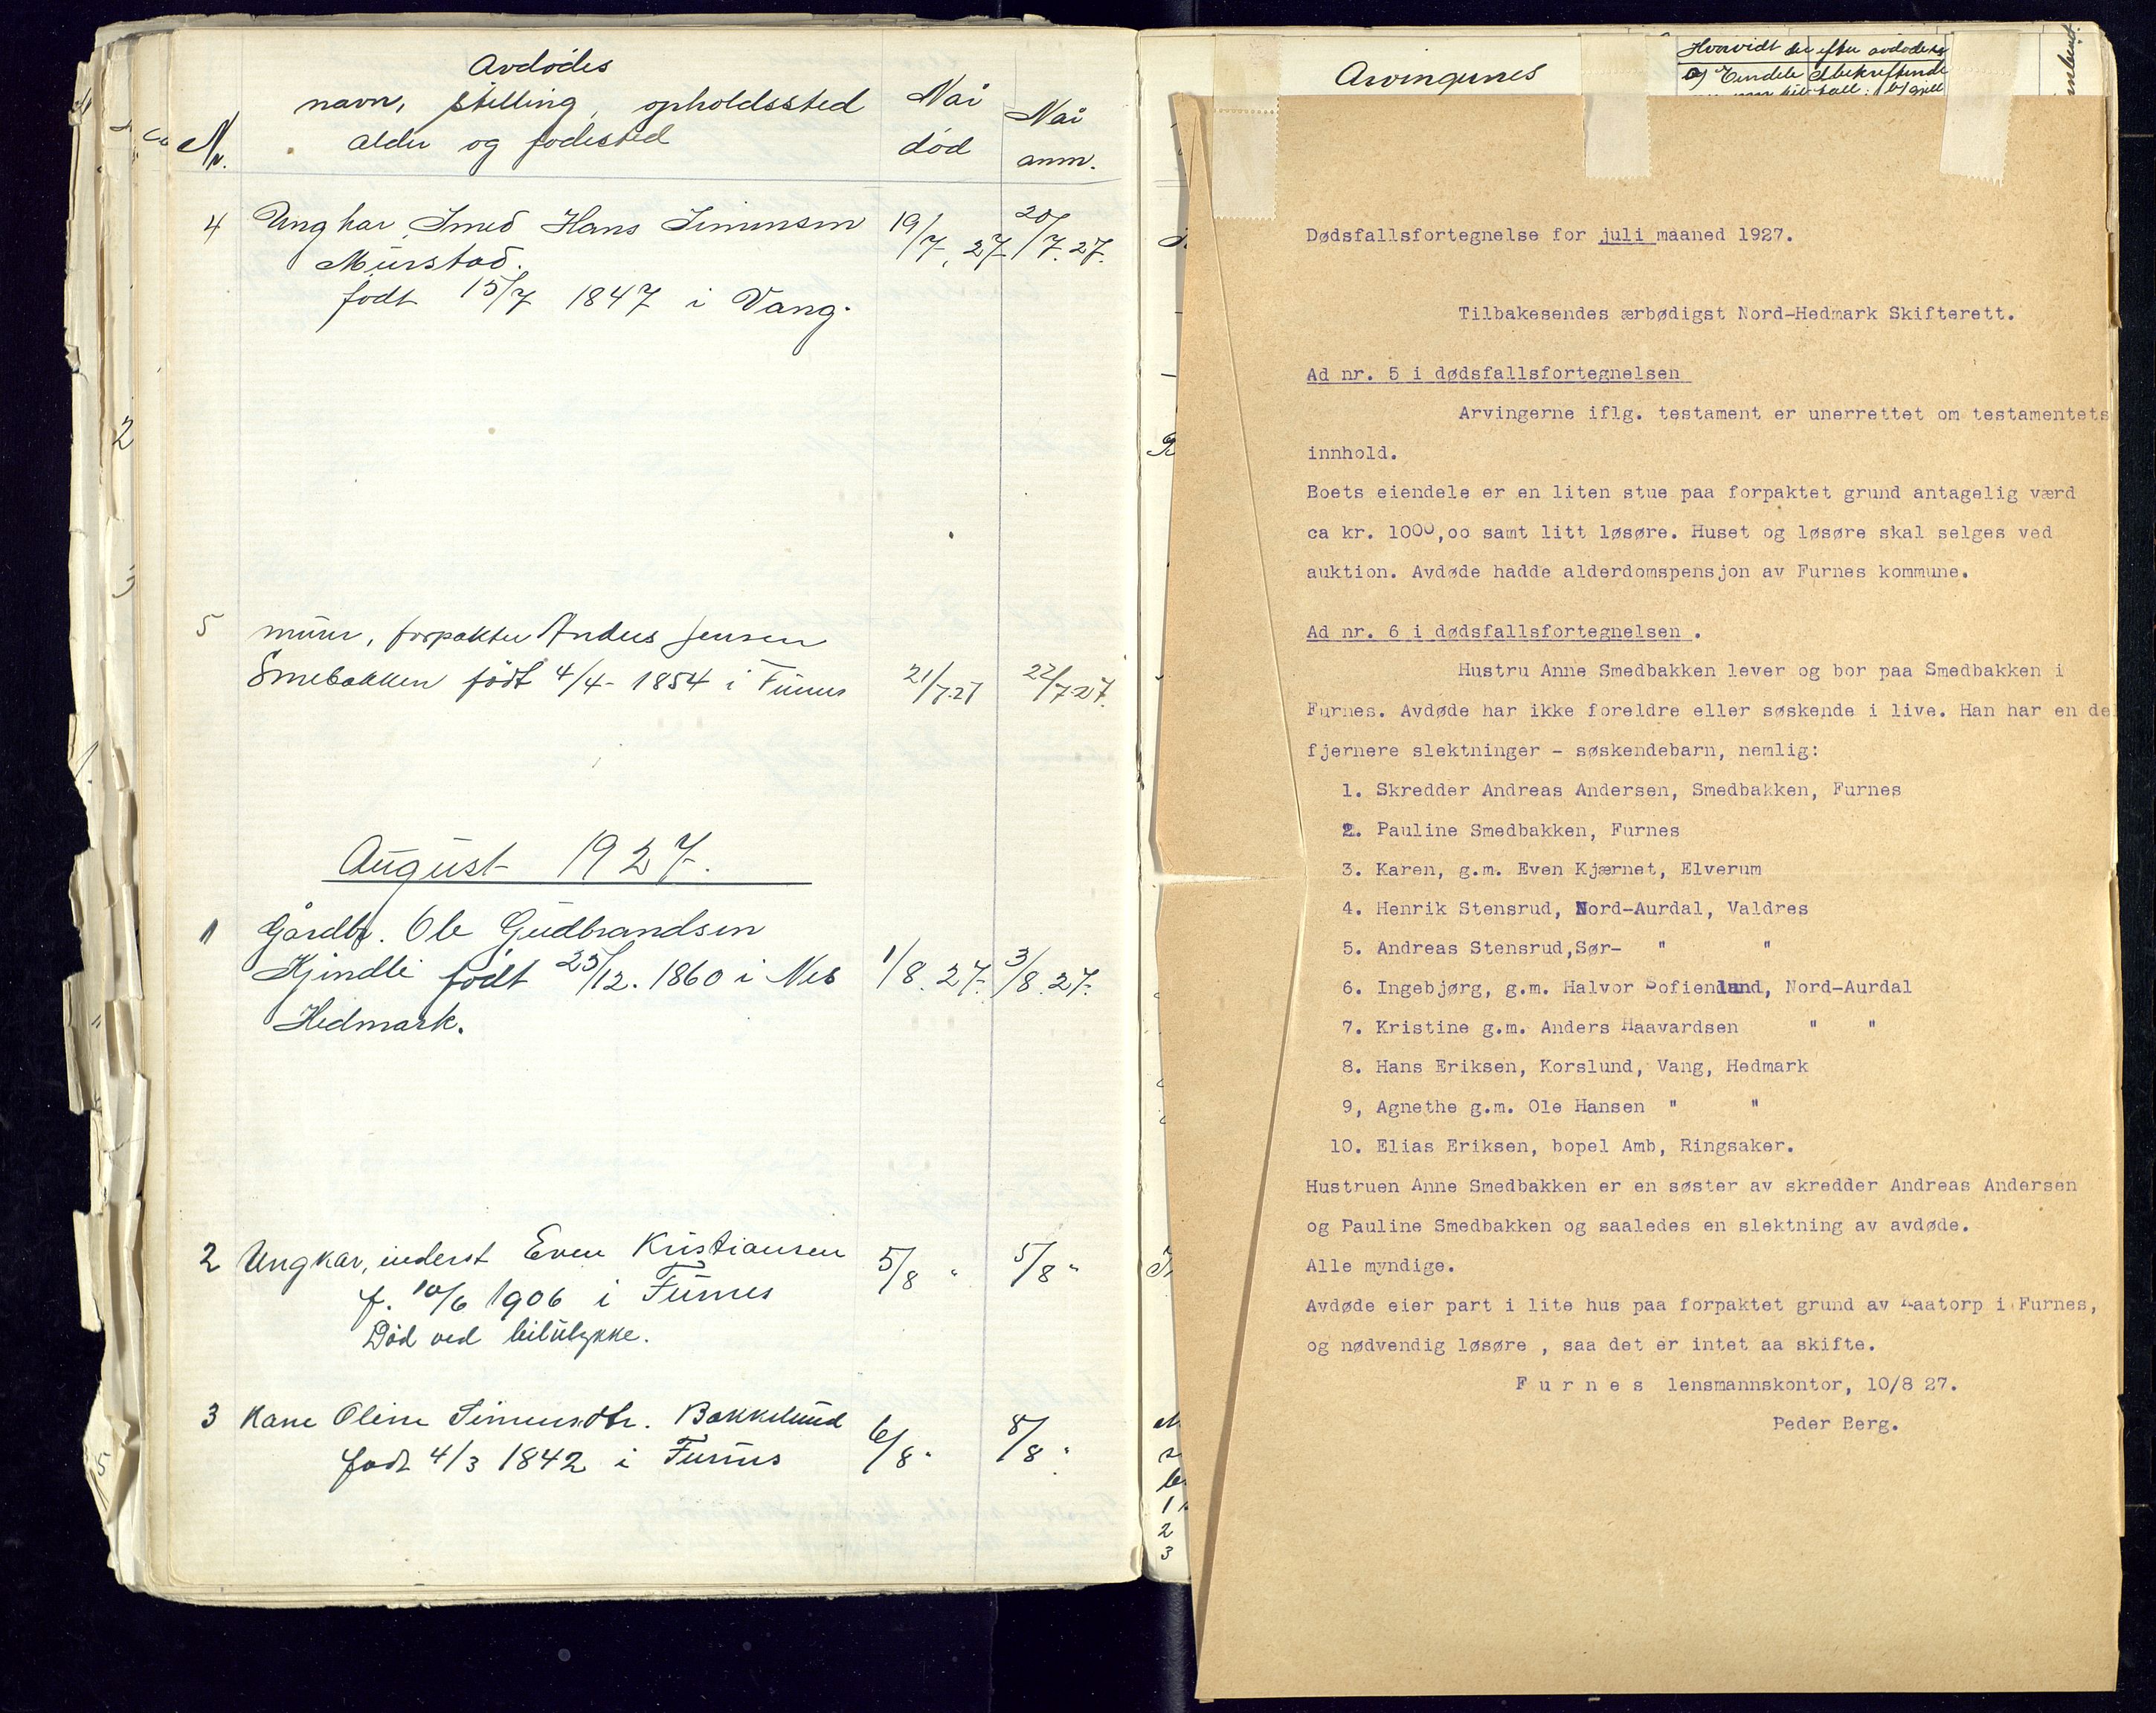 Avdødes
navn, stilling, opholdssted
alder og fødested
Nr.
Når
død
Når
anm.
4 Ungkar, Smed Hans Simensen 19/7.27 20/7.27.
Murstad.
født 15/7 1847 i Vang.
5 murer, forpakter Anders Jensen
Smebakken født 4/4-1854 i Furnes 21/7.27 22/7.27.
August 1927.
1 Gårdbr. Ole Gudbrandsen
Kjindli født 25/12. 1860 i Nes 1/8.27. 3/8.27.
Hedmark.
2 Ungkar, inderst Even Kristiansen 5/8 " 5/8 "
f. 10/6 1906 i Furnes
Død ved bilulykke.
3 Kåne Oline Simensdtr. Bakkelund 6/8 " 8/8 "
født 4/3 1842 i Furnes
Arvingernes
Hvorvidt der efter avdøde
a) Eiendele
Dødsfallsfortegnelse for juli maaned 1927.
Tilbakesendes ærbødigst Nord-Hedmark Skifterett.
Ad nr. 5 i dødsfallsfortegnelsen
Arvingerne iflg. testament er unerrettet om testamentets
innhold.
Boets eiendele er en liten stue paa forpaktet grund antagelig værd
ca kr. 1000,oo samt litt løsøre. Huset og løsøre skal selges ved
auktion. Avdøde hadde alderdomspensjon av Furnes kommune.
Ad nr. 6 i dødsfallsfortegnelsen .
Hustru Anne Smedbakken lever og bor paa Smedbakken i
Furnes. Avdøde har ikke foreldre eller søskende i live. Han har en del
fjernere slektninger - søskendebarn, nemlig:
1. Skredder Andreas Andersen, Smedbakken, Furnes
2. Pauline Smedbakken, Furnes
3. Karen, g.m. Even Kjærnet, Elverum
4. Henrik Stensrud, Nord-Aurdal, Valdres
5. Andreas Stensrud,Sør- " "
6. Ingebjørg, g.m. Halvor Sofienlund, Nord-Aurdal
7. Kristine g.m. Anders Haavardsen " "
8. Hans Eriksen, Korslund, Vang, Hedmark
9, Agnethe g.m. Ole Hansen " "
10. Elias Eriksen, bopel Amb, Ringsaker.
Hustruen Anne Smedbakken er en søster av skredder Andreas Andersen
og Pauline Smedbakken og saaledes en slektning av avdøde.
Alle myndige.
Avdøde eier part i lite hus paa forpaktet grund av Laatorp i Furnes,
og nødvendig løsøre , saa det er intet aa skifte.
F u r n e s lensmannskontor, 10/8 27.
Peder Berg.